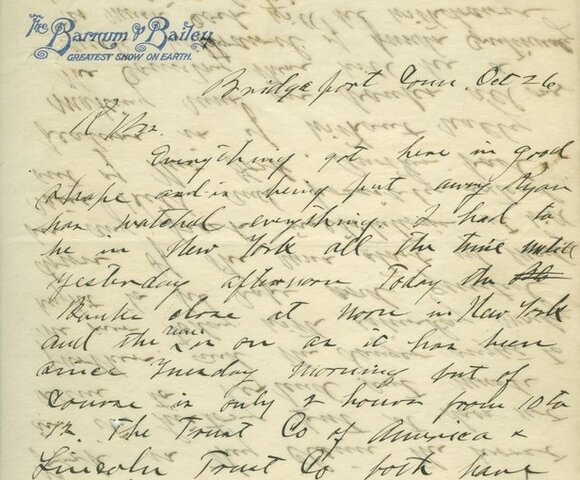 The Barnum & Bailey
GREATEST SHOW ON EARTH.
Bridgeport Conn. Oct 26
Everything got here in good
shape and is being put away Ryan
has watched everything. I had to
be in New York all the time until
yesterday afternoon Today the
Banks close at noon in New York
and the run is on as it has been
since Tuesday Morning but of
course is only 2 hours from 10 to
12. The Trust Co of America &
Lincoln Trust Co both have